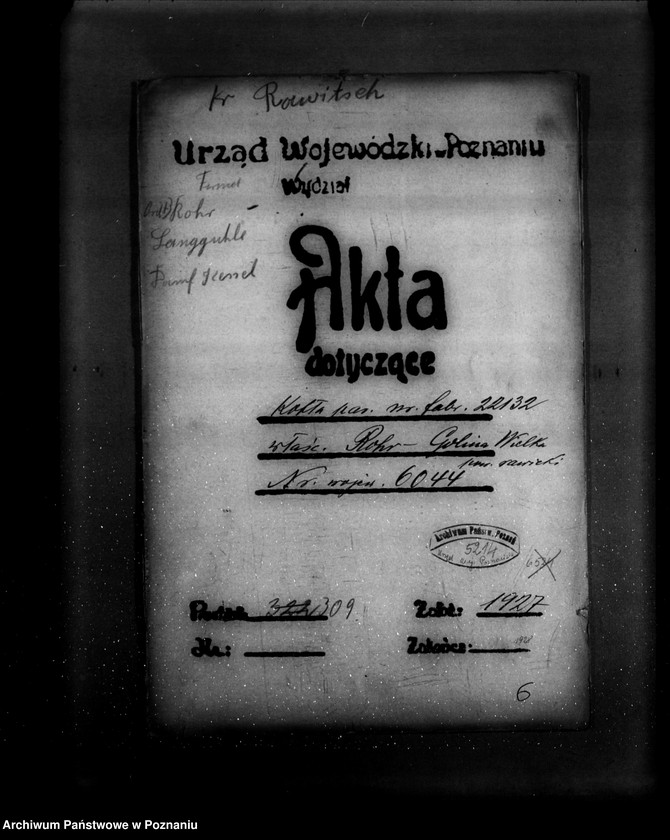 Kr Rawitsch
Urząd Wojewódzki w Poznaniu
Wydział
Rohr
Langguhle
Akta
dotyczące
Kotła par. nr. fabr. 22132
właśc. Rohr - Golina Wielka
pow. rawicki
Nr. wojew. 6044
Archiwum Państw. Poznań
5214
Urząd Woj. Poznański
309
Zał.: 1927
Nr.:
Zakończ.:
6
Archiwum Państwowe w Poznaniu